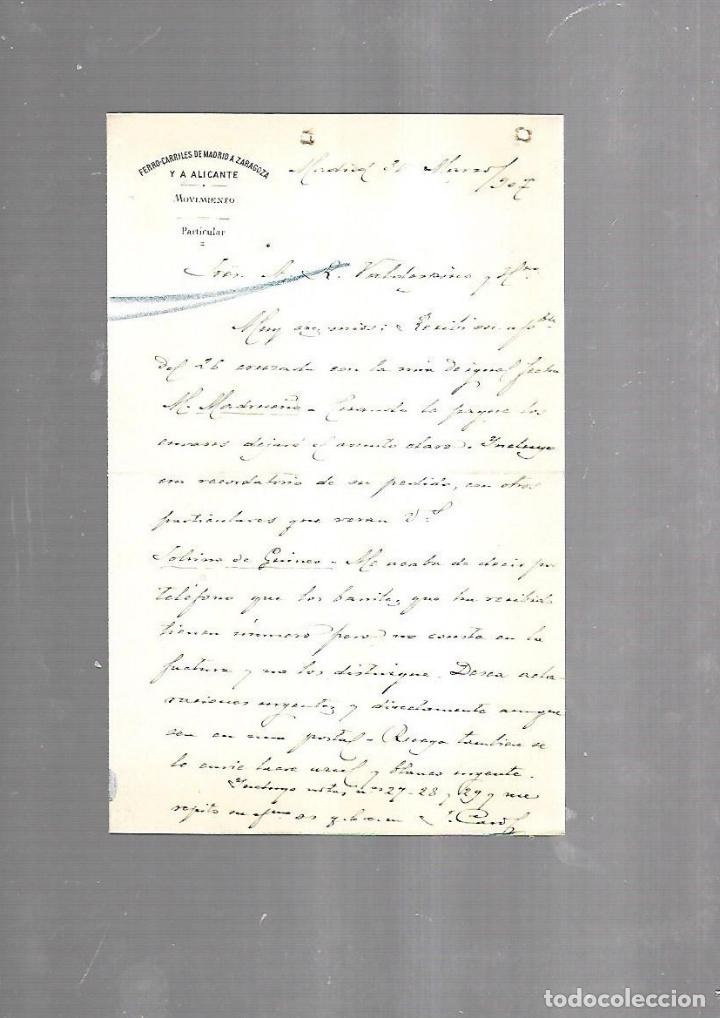 FERRO-CARRILES DE MADRID A ZARAGOZA
Y A ALICANTE
MOVIMIENTO
Particular
Madrid Marzo 907
Sres. A. R. Valdespino y Hno
Muy Sres mios: Recibi su
del 26 cruzada con la mia de igual fecha
M. Madrueño - Cuando la pague los
envases dejaré el asunto claro. Incluyo
un recordatorio de su pedido, con otros
particulares que veran Vs
Sobrino de Guinea - Me acaba de decir por
teléfono que los barriles que ha recibido
tienen número pero no consta en la
factura y no los distingue. Desea acla-
raciones urgentes y directamente aunque
sea en una postal - Ruega tambien se
le envie lacre azul y blanco urgente.
Incluyo notas nos 27-28 y 29 y me
repito su afmo ss q.b.s.m
todocoleccion
todocoleccion.net